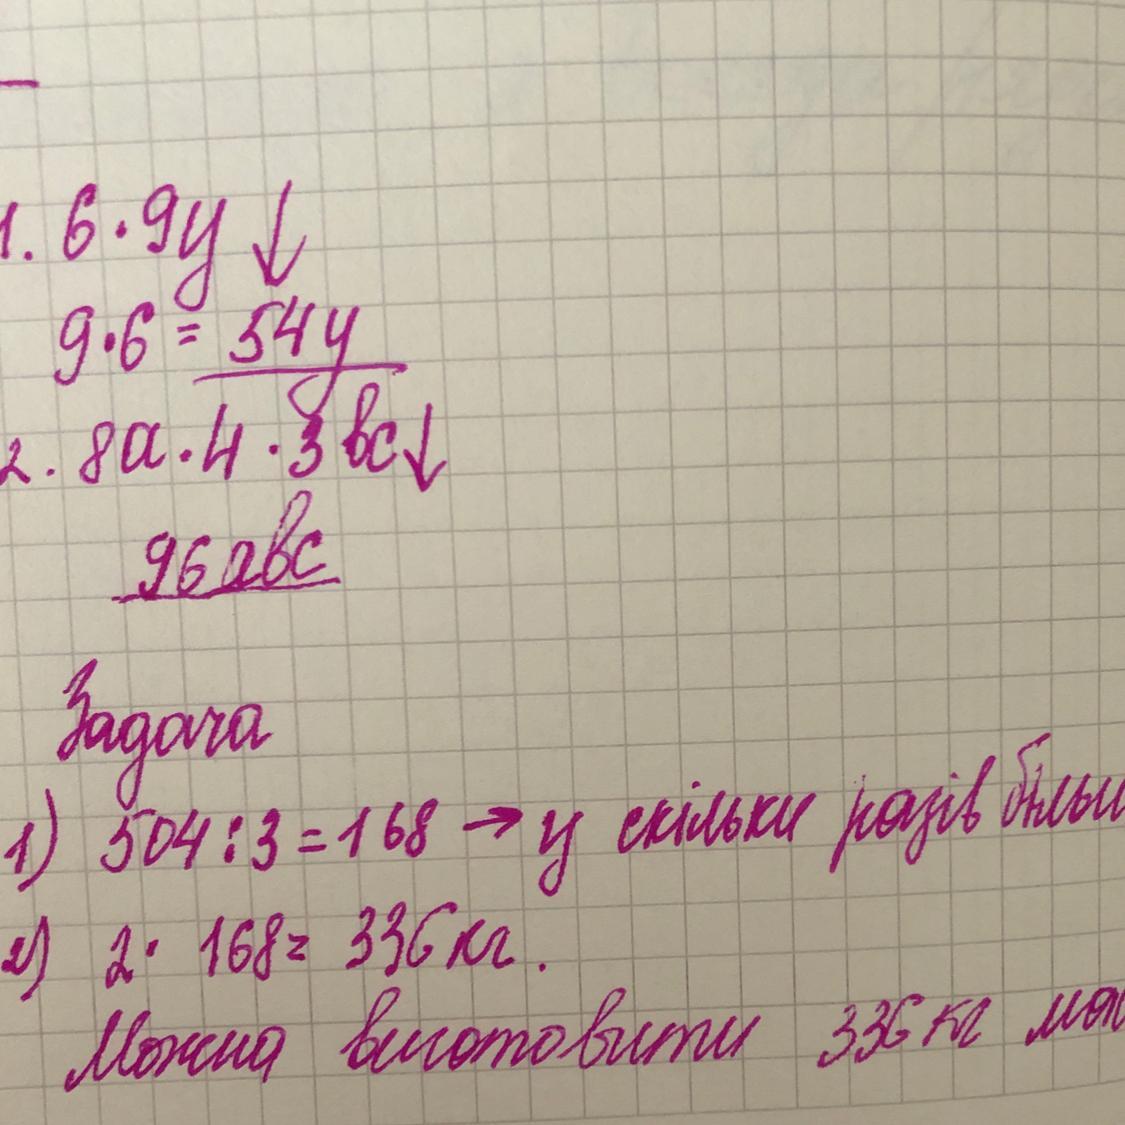 1. 6·9y ↓
9·6 = 54y
2. 8a·4·3bc↓
96abc
Задача
1) 504:3=168 → у скільки разів більш
2) 2·168= 336 кг.
Можна виготовити 336 кг